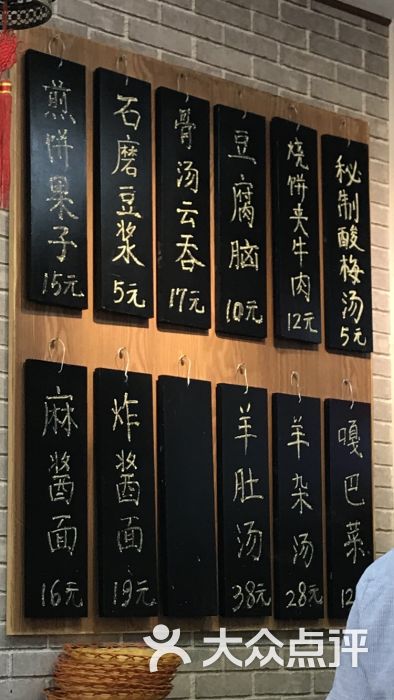 煎饼果子
15元
石磨豆浆
5元
骨汤云吞
17元
豆腐脑
10元
烧饼夹牛肉
12元
秘制酸梅汤
5元
麻酱面
16元
炸酱面
19元
羊肚汤
38元
羊杂汤
28元
嘎巴菜
12
大众点评